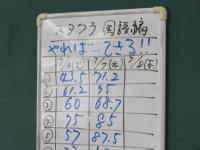 スタプラ 国語編
やれば…できる!!
7/6(土) 7/7(水) 7/8(木)
① 43.5 71.2
② 61.2 35
③ 60 68.7
④ 75 8.5
⑤ 57 87.5